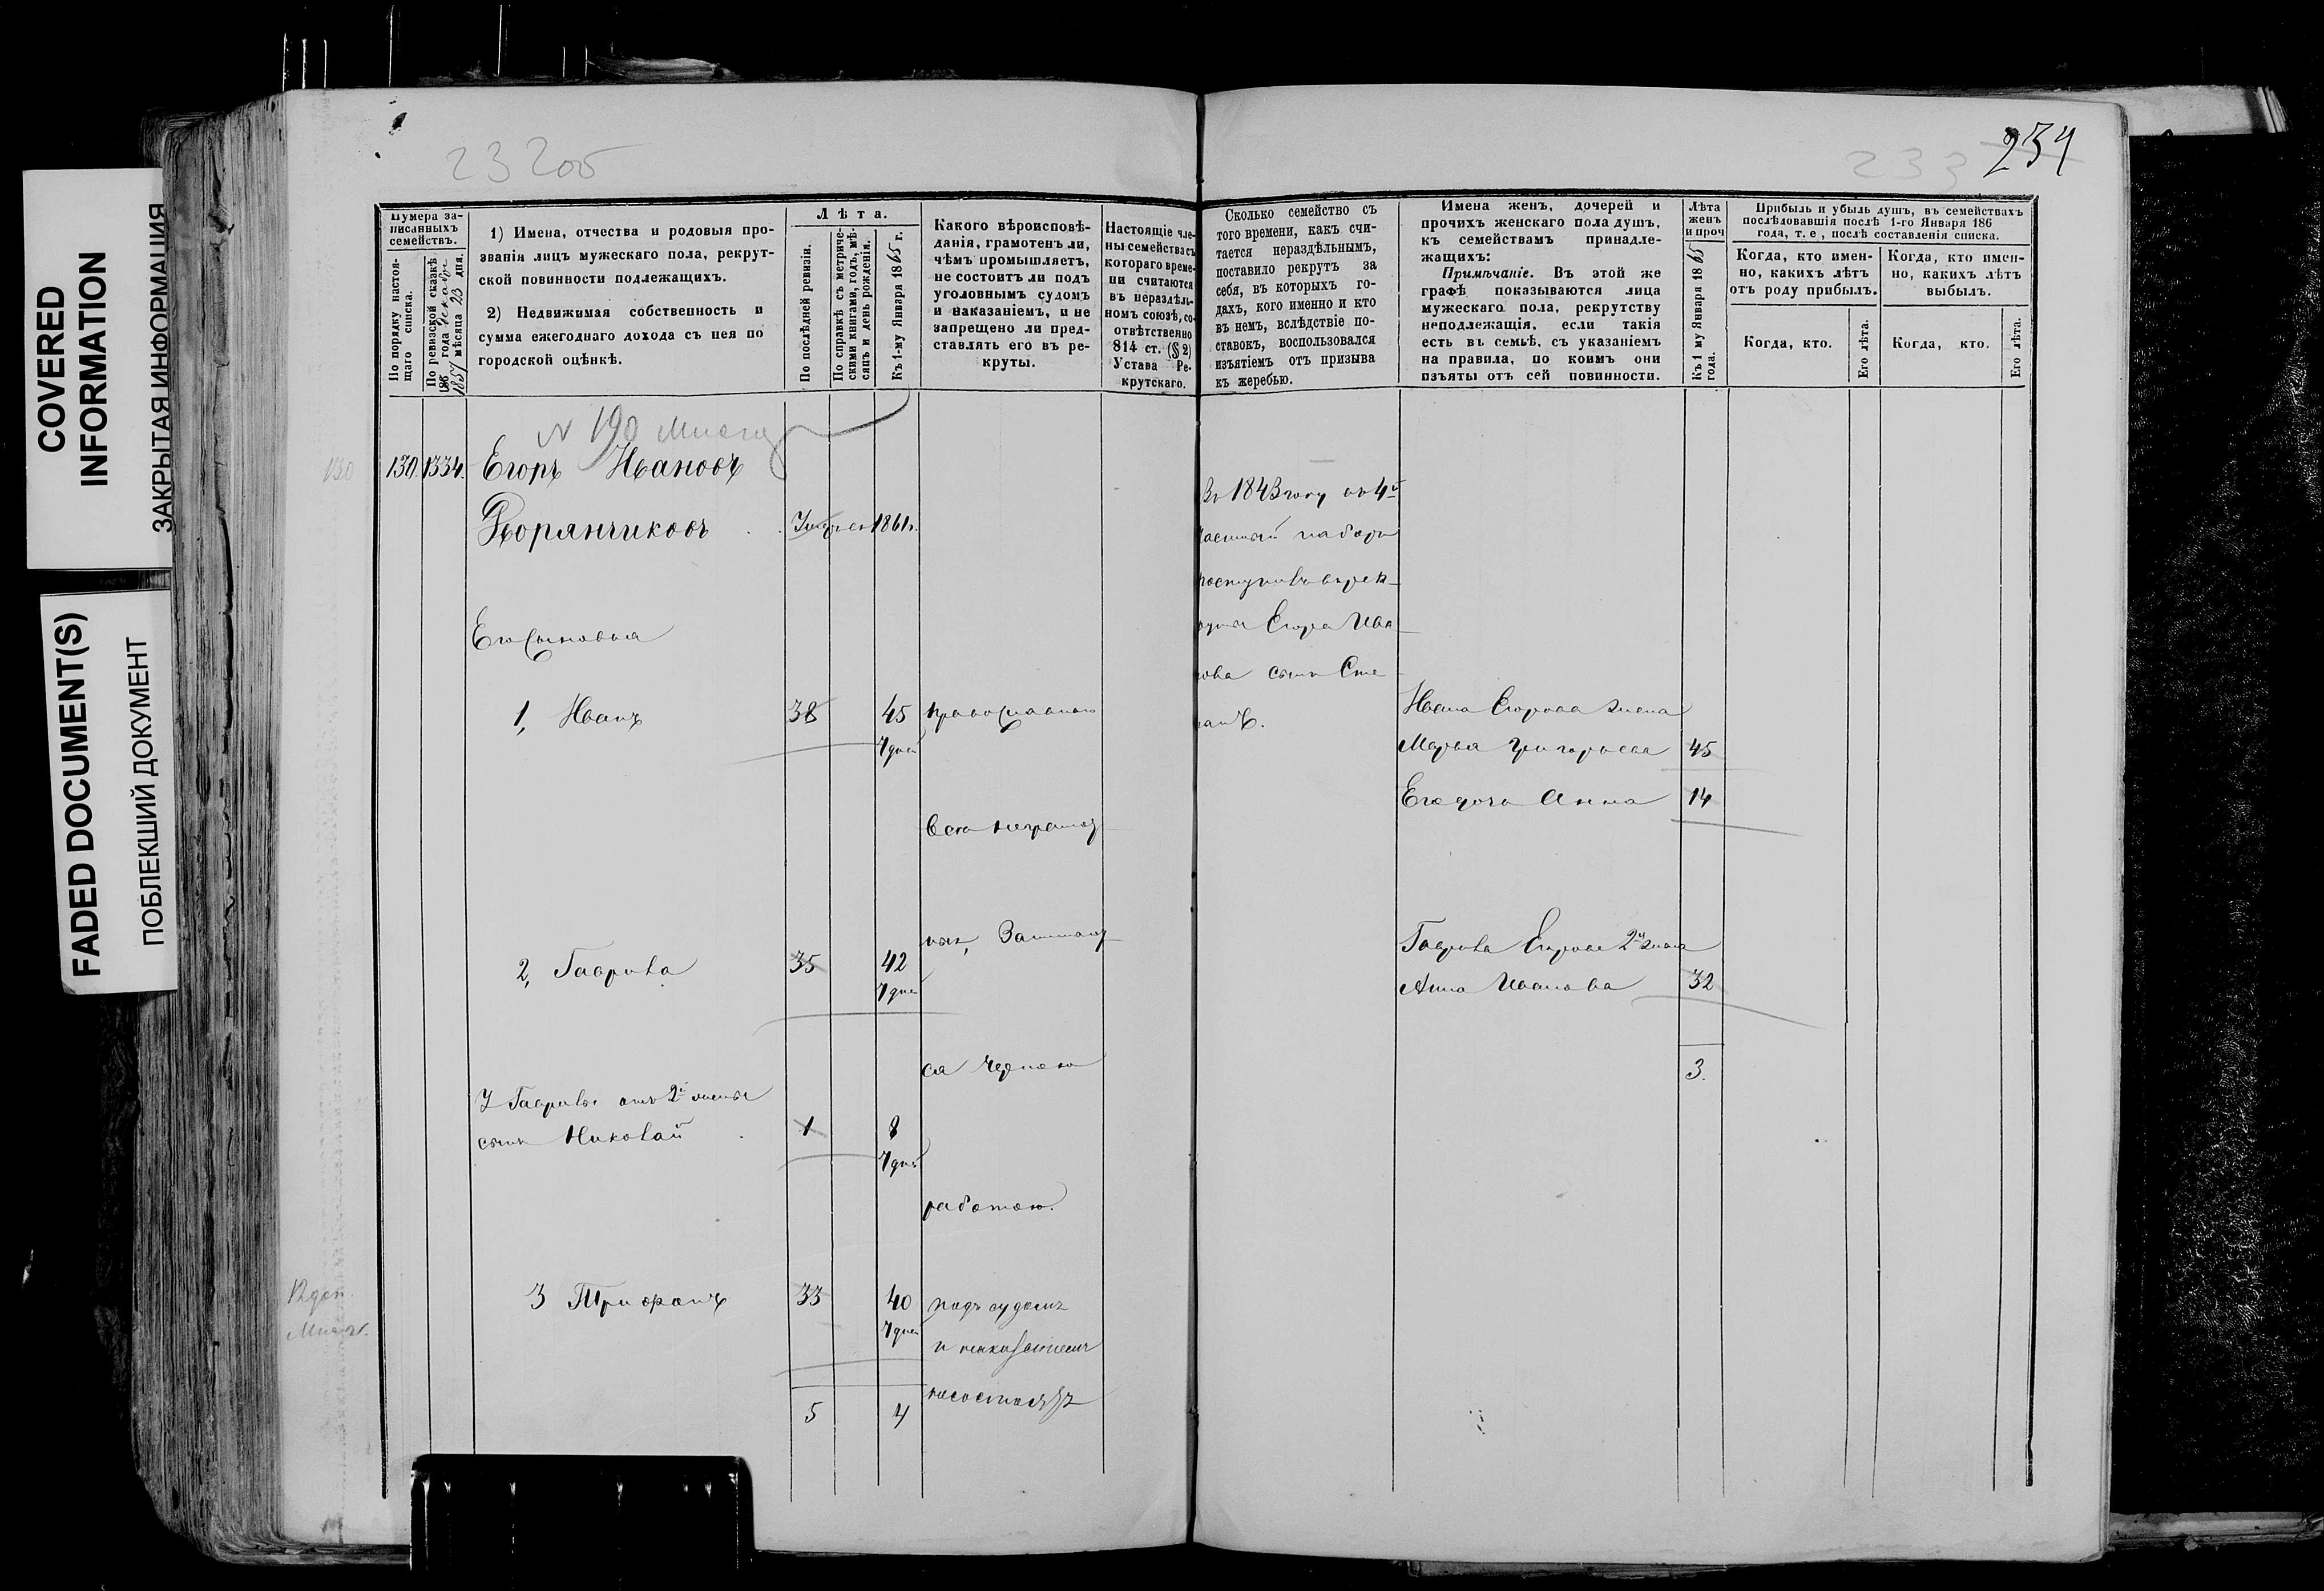 COVERED
INFORMATION
ЗАКРЫТАЯ ИНФОРМАЦИЯ
FADED DOCUMENT(S)
ПОБЛЕКШИЙ ДОКУМЕНТ
232об
233
234
Нумера за-
писанныхъ
семействъ.
По порядку настоя-
щаго списка.
По ревизской сказкѣ
186 года декабря
1857 мѣсяца 23 дня.
1) Имена, отчества и родовыя про-
званія лицъ мужескаго пола, рекрут-
ской повинности подлежащихъ.
2) Недвижимая собственность и
сумма ежегоднаго дохода съ нея по
городской оцѣнкѣ.
Лѣта.
По послѣдней ревизіи.
По справкѣ съ метриче-
скими книгами, годъ, мѣ-
сяцъ и день рожденія.
Къ 1-му Января 1865 г.
Какого вѣроисповѣ-
данія, грамотенъ ли,
чѣмъ промышляетъ,
не состоитъ ли подъ
уголовнымъ судомъ
и наказаніемъ, и не
запрещено ли пред-
ставлять его въ ре-
круты.
Настоящіе чле-
ны семейства съ
котораго време-
ни считаются
въ нераздѣль-
номъ союзѣ, со-
отвѣтственно
814 ст. (§ 2)
Устава Ре-
крутскаго.
Сколько семейство съ
того времени, какъ счи-
тается нераздѣльнымъ,
поставило рекрутъ за
себя, въ которыхъ го-
дахъ, кого именно и кто
въ немъ, вслѣдствіе по-
ставокъ, воспользовался
изъятіемъ отъ призыва
къ жеребью.
Имена женъ, дочерей и
прочихъ женскаго пола душъ,
къ семействамъ принадле-
жащихъ:
Примѣчаніе. Въ этой же
графѣ показываются лица
мужескаго пола, рекрутству
неподлежащія, если такія
есть въ семьѣ, съ указаніемъ
на правила, по коимъ они
изъяты отъ сей повинности.
Лѣта
женъ
и проч
Къ 1 му Января 1865
года.
Прибыль и убыль душъ, въ семействахъ
послѣдовавшія послѣ 1-го Января 186
года, т. е, послѣ составленія списка.
Когда, кто имен-
но, какихъ лѣтъ
отъ роду прибылъ.
Когда, кто имен-
но, какихъ лѣтъ
выбылъ.
Когда, кто.
Его лѣта.
Когда, кто.
Его лѣта.
N 190
130 130. 1334. Егоръ Ивановъ
Дворянчиковъ 1861г.
Его Сыновья
1, Иванъ 38 45 православнаго
7 дней
Всѣ неграмот
ны, Занимают
2, Гаврила 35 42
7 дней
ся черною
У Гаврилы отъ 2й жены
сынъ Николай 1 8
7 дней
работою.
3 Трифонъ 33 40 подъ судомъ
7 дней
и наказаніемъ
несостоятъ
5 4
Въ 1843 году въ 4й
частный наборъ
поступилъ въ рек-
руты Егора Ива
нова сынъ Сте
панъ.
Ивана Егорова жена
Марья Григорьева 45
Его дочь Анна 14
Гаврилы Егорова 2я жена
Анна Иванова 32
3.